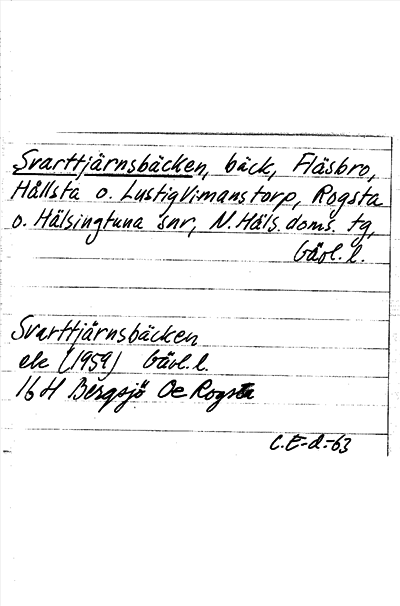 Svarttjärnsbäcken, bäck, Fläsbro,
Hållsta o. Lustigvimanstorp, Rogsta
o. Hälsingtuna snr, N. Häls. doms. tg,
Gävl. l.
Svarttjärnsbäcken
ek (1959) Gävl. l.
16 H Bergsjö Oe Rogsta
C.E-d.-63